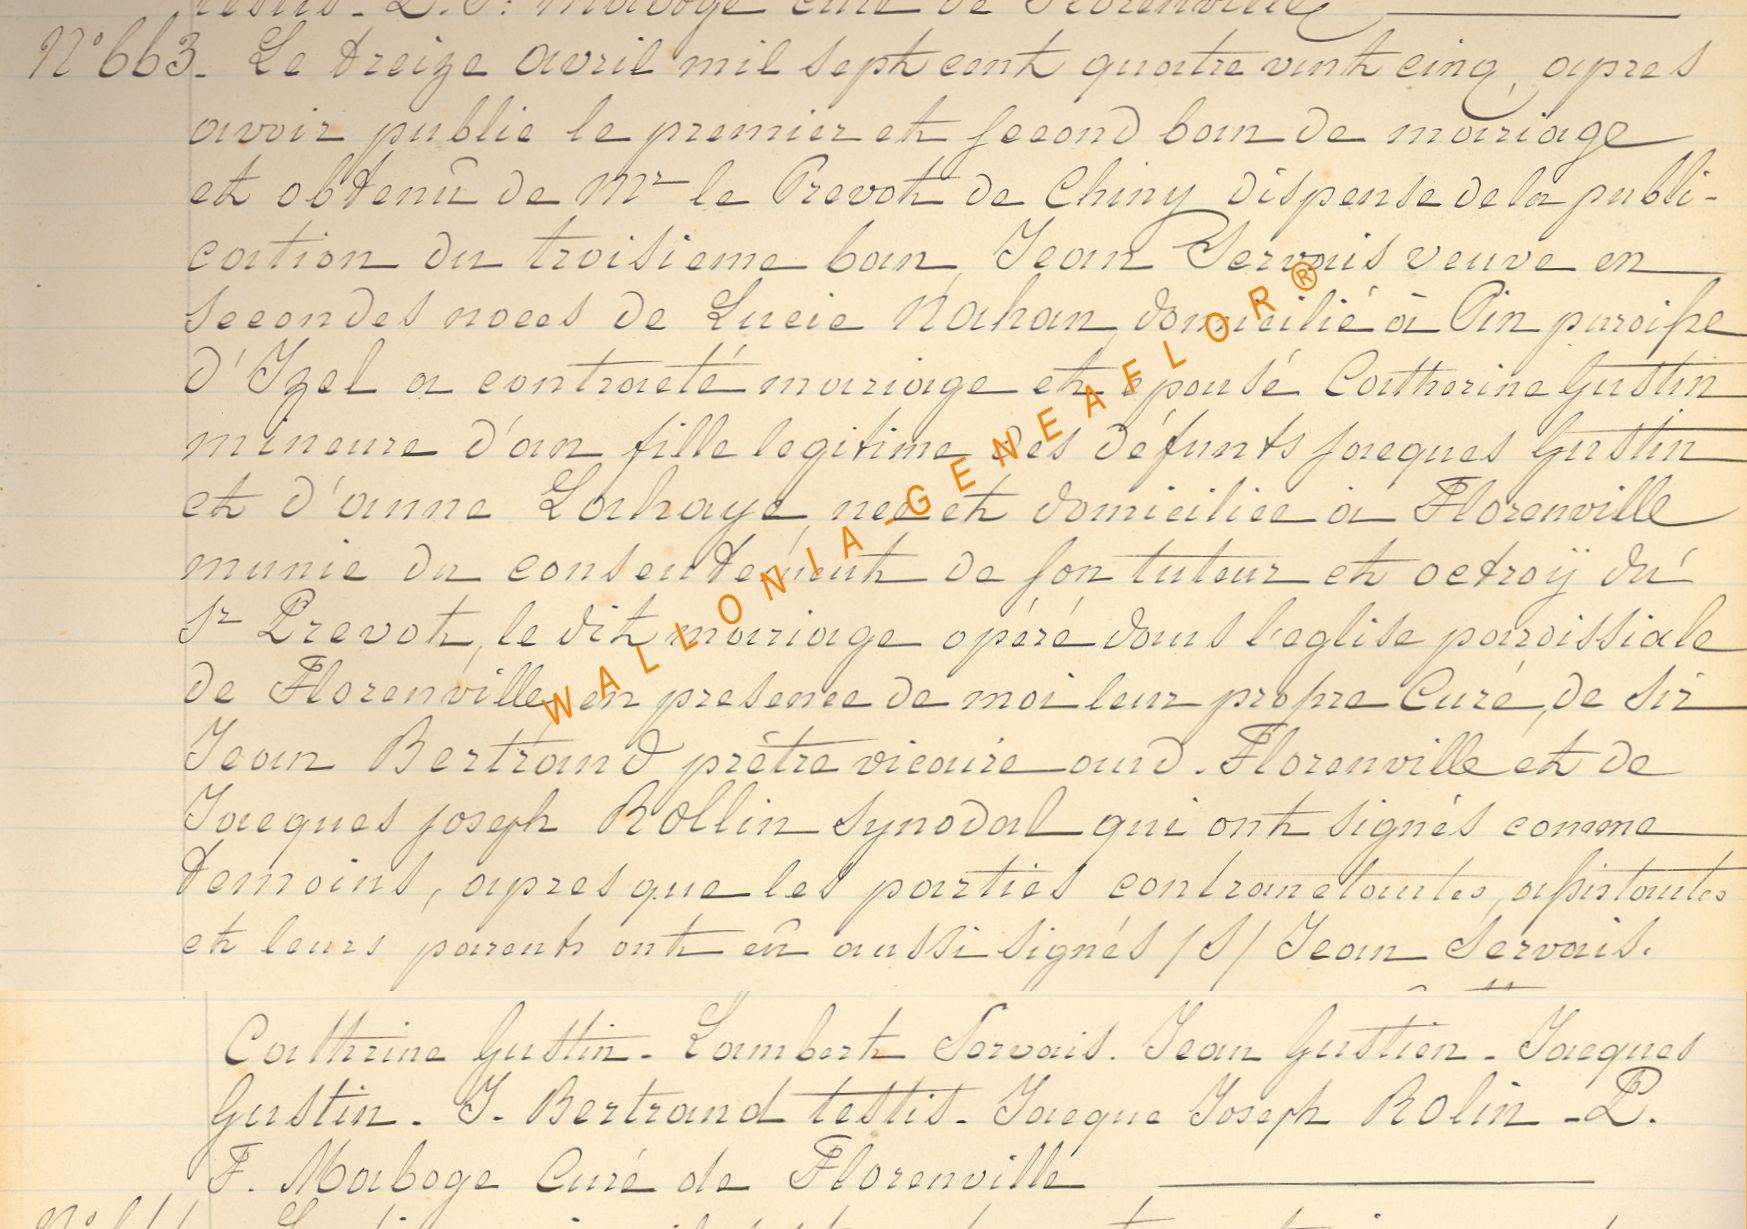 testis. L. F. Maboge curé de Florenville
N° 663. Le treize avril mil sept cent quatre vint cinq, apres
avoir publie le premier et second ban de mariage
et obtenû de Mr le Prevot de Chiny dispense de la publi-
cation du troisieme ban, Jean Servais veuve en
secondes noces de Lucie Nahan, domicilié à Pin paroisse
d'Izel a contracté mariage et épousé Catherine Gustin
mineure d'an fille legitime des défunts Jacques Gustin
et d'anne Lahaye, neé et domiciliee a Florenville
munie du consentement de son tuteur et octroÿ du
Sr Prevot, le dit mariage opéré dans l'eglise paroissiale
de Florenville en presence de moi leur propre Curé, de Sir
Jean Bertrand prêtre vicaire aud. Florenville et de
Jacques joseph Rollin synodal qui ont signés comme
temoins, apres que les parties contractantes, assistantes
et leurs parents ont eû aussi signés /S/ Jean Servais.
Cathrine Gustin - Lambert Servais. Jean Gustien - Jacques
Gustin - J. Bertrand testis - Jacque Joseph Rolin - L.
F. Maboge Curé de Florenville
WALLONIA-GENEAFLOR®